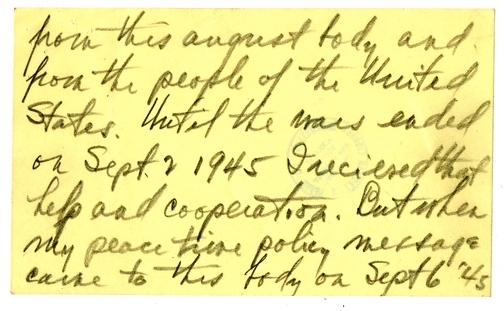 from this august body and
from the people of the United
States. Until the wars ended
on Sept. 2 1945 I recieved that
help and cooperation. But when
my peace time policy message
came to this body on Sept 6 '45